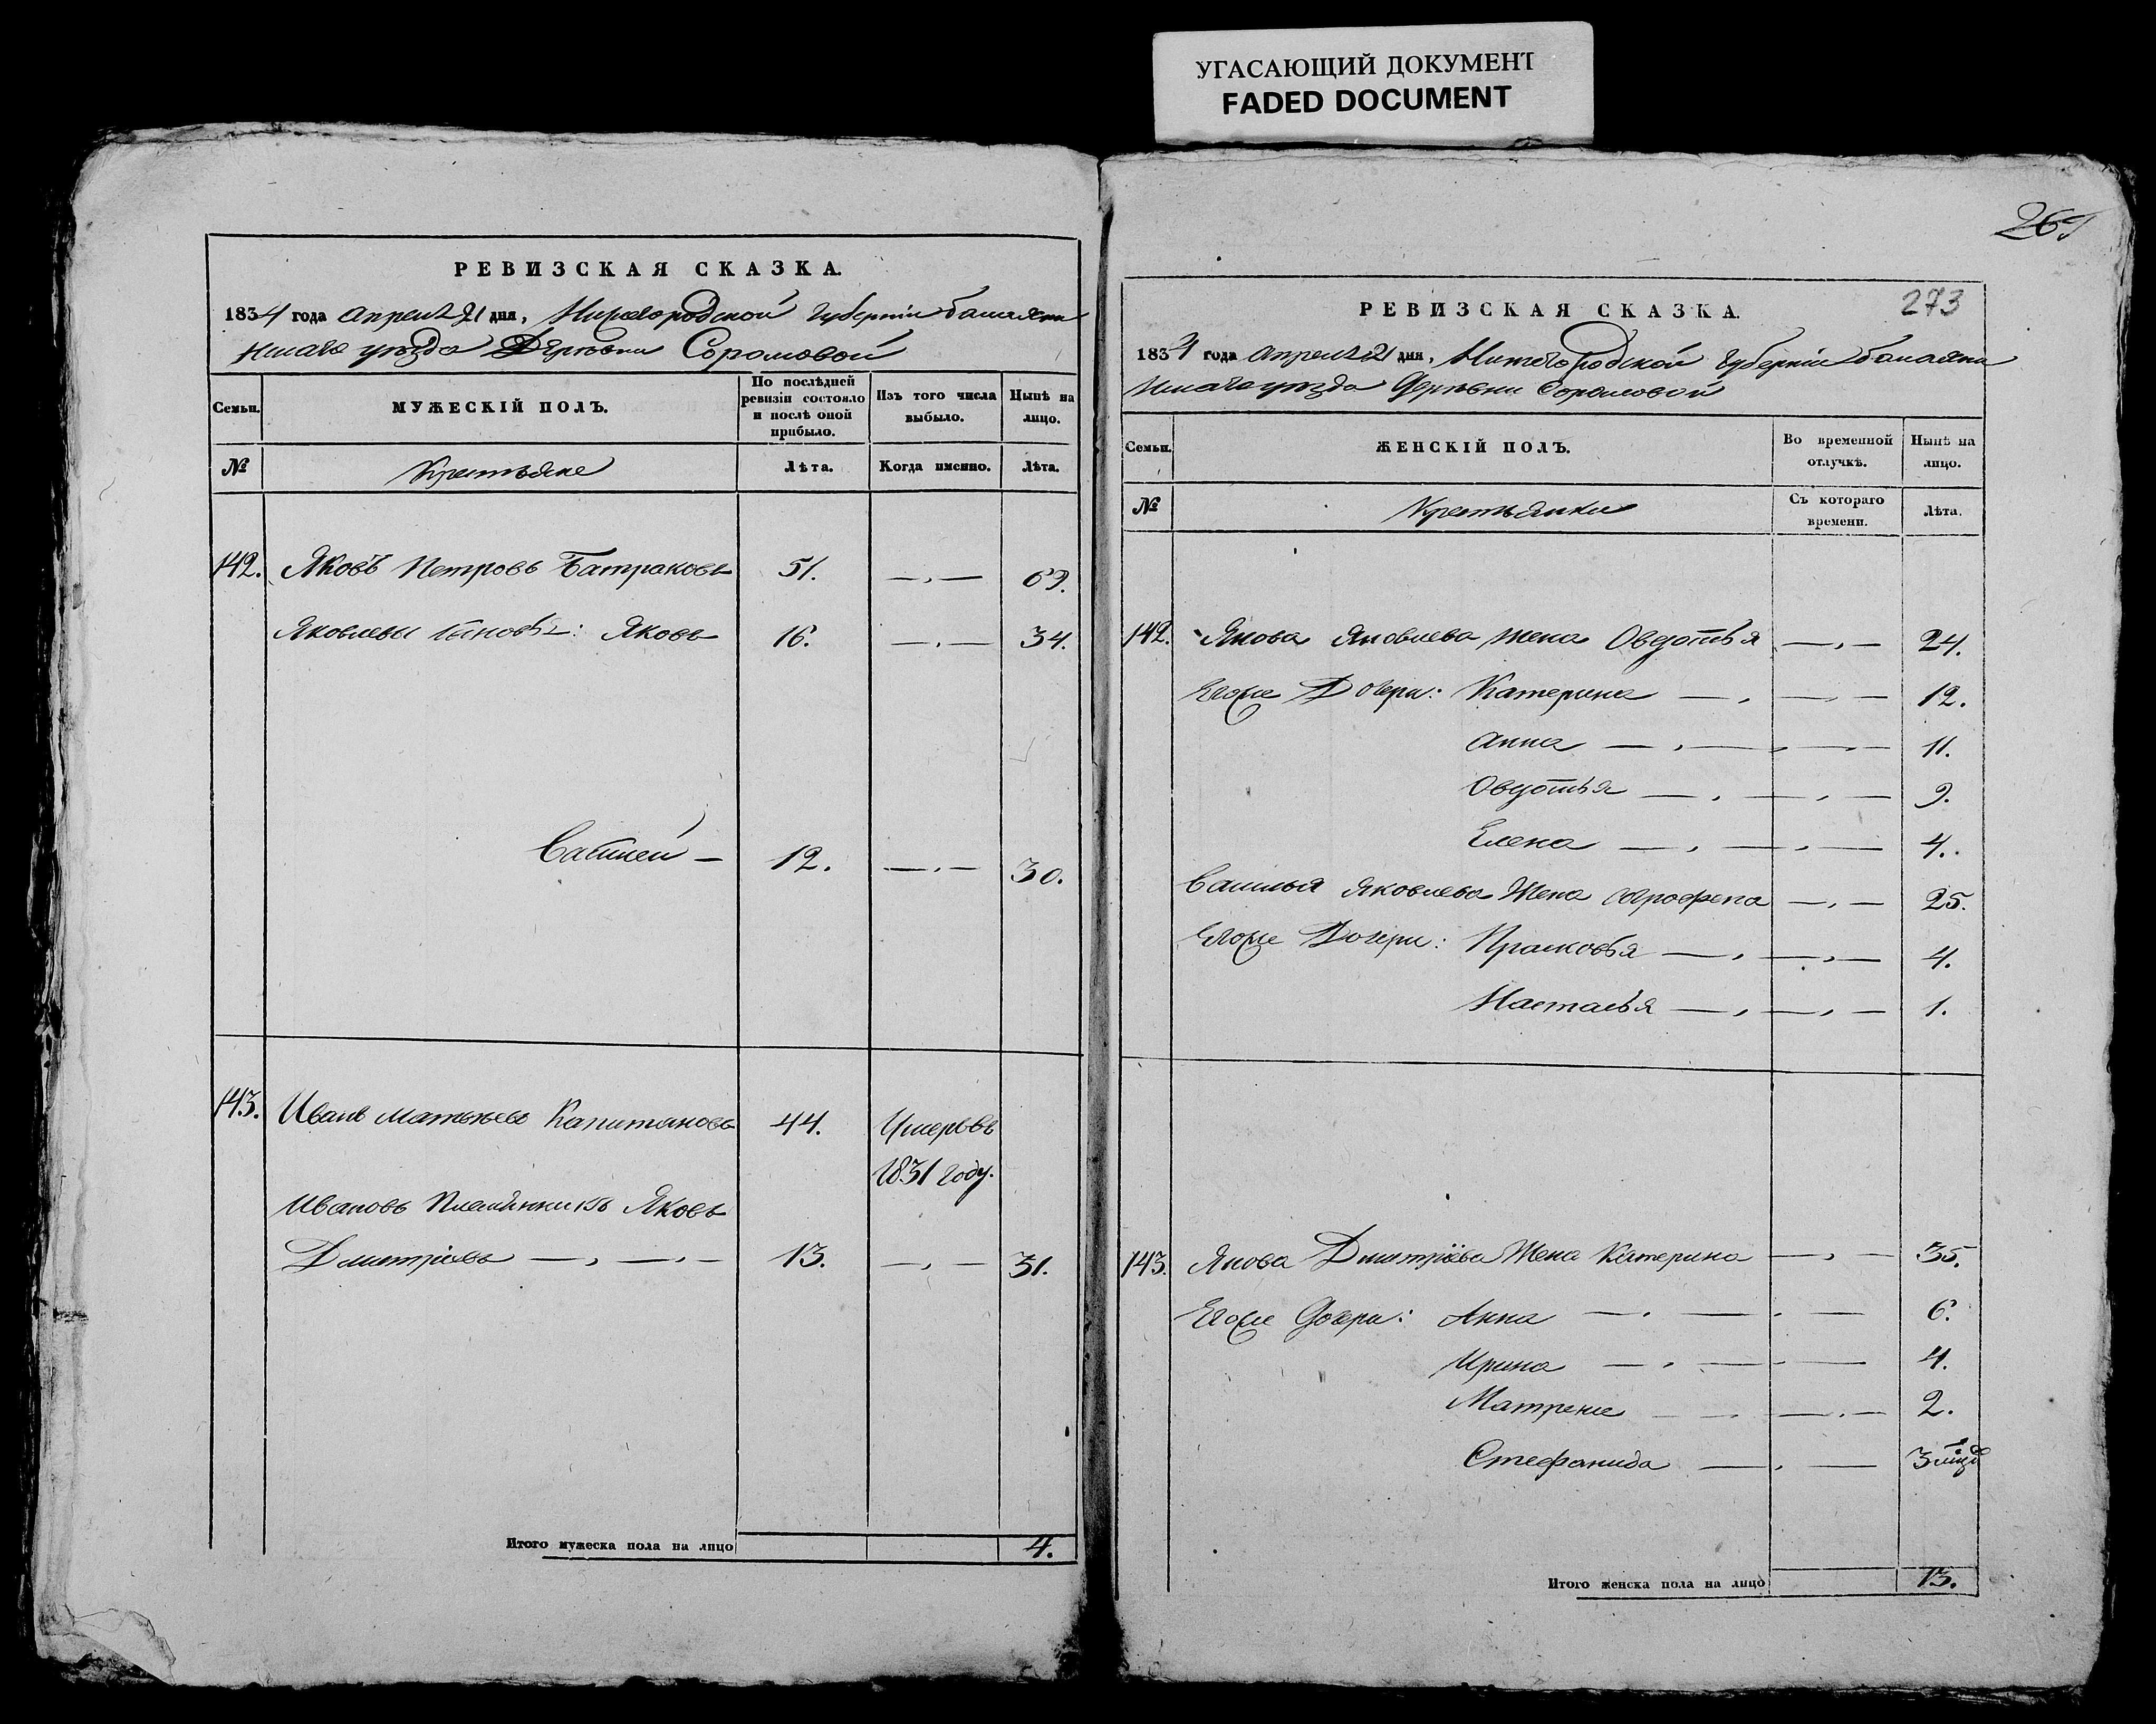 УГАСАЮЩИЙ ДОКУМЕНТ
FADED DOCUMENT
РЕВИЗСКАЯ СКАЗКА.
1834 года апреля 21 дня, Нижегородской Губерніи балахни
нскаго уѣзда Деревни Соромовой
Семьи. МУЖЕСКІЙ ПОЛЪ. По послѣдней ревизіи состояло и послѣ оной прибыло. Изъ того числа выбыло. Нынѣ на лицо.
№ Крестьяне Лѣта. Когда именно. Лѣта.
142. Яковъ Петровъ Батраковъ 51. —„— 69.
Яковлевы сыновья: Яковъ 16. —„— 34.
Василей — 12. —„— 30.
143. Иванъ Матвѣевъ Капитановъ 44. Умеръ въ
1831 году.
Ивановъ Племянникъ Яковъ
Дмитріевъ —„—„— 13. —„— 31.
Итого мужеска пола на лицо 4.
267
273
РЕВИЗСКАЯ СКАЗКА.
1834 года апреля 21 дня, Нижегородской Губерніи балахни
нскаго уѣзда Деревни Соромовой
Семьи. ЖЕНСКІЙ ПОЛЪ. Во временной отлучкѣ. Нынѣ на лицо.
№ Крестьянки Съ котораго времени. Лѣта.
142. Якова Яковлева жена Овдотья —„— 24.
Егоже Дочери: Катерина —„—„— 12.
Анна —„—„— 11.
Овдотья —„—„— 9.
Елена —„—„— 4.
Василья Яковлева Жена Агрофена —„— 25.
Егоже Дочери: Прасковья —„—„— 4.
Настасья —„—„— 1.
143. Якова Дмитріева Жена Катерина —„— 35.
Егоже Дочери: Анна —„—„— 6.
Ирина —„—„— 4.
Матрена —„—„— 2.
Стефанида —„— 3
Итого женска пола на лицо 13.